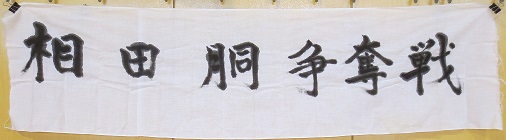 相田胴争奪戦